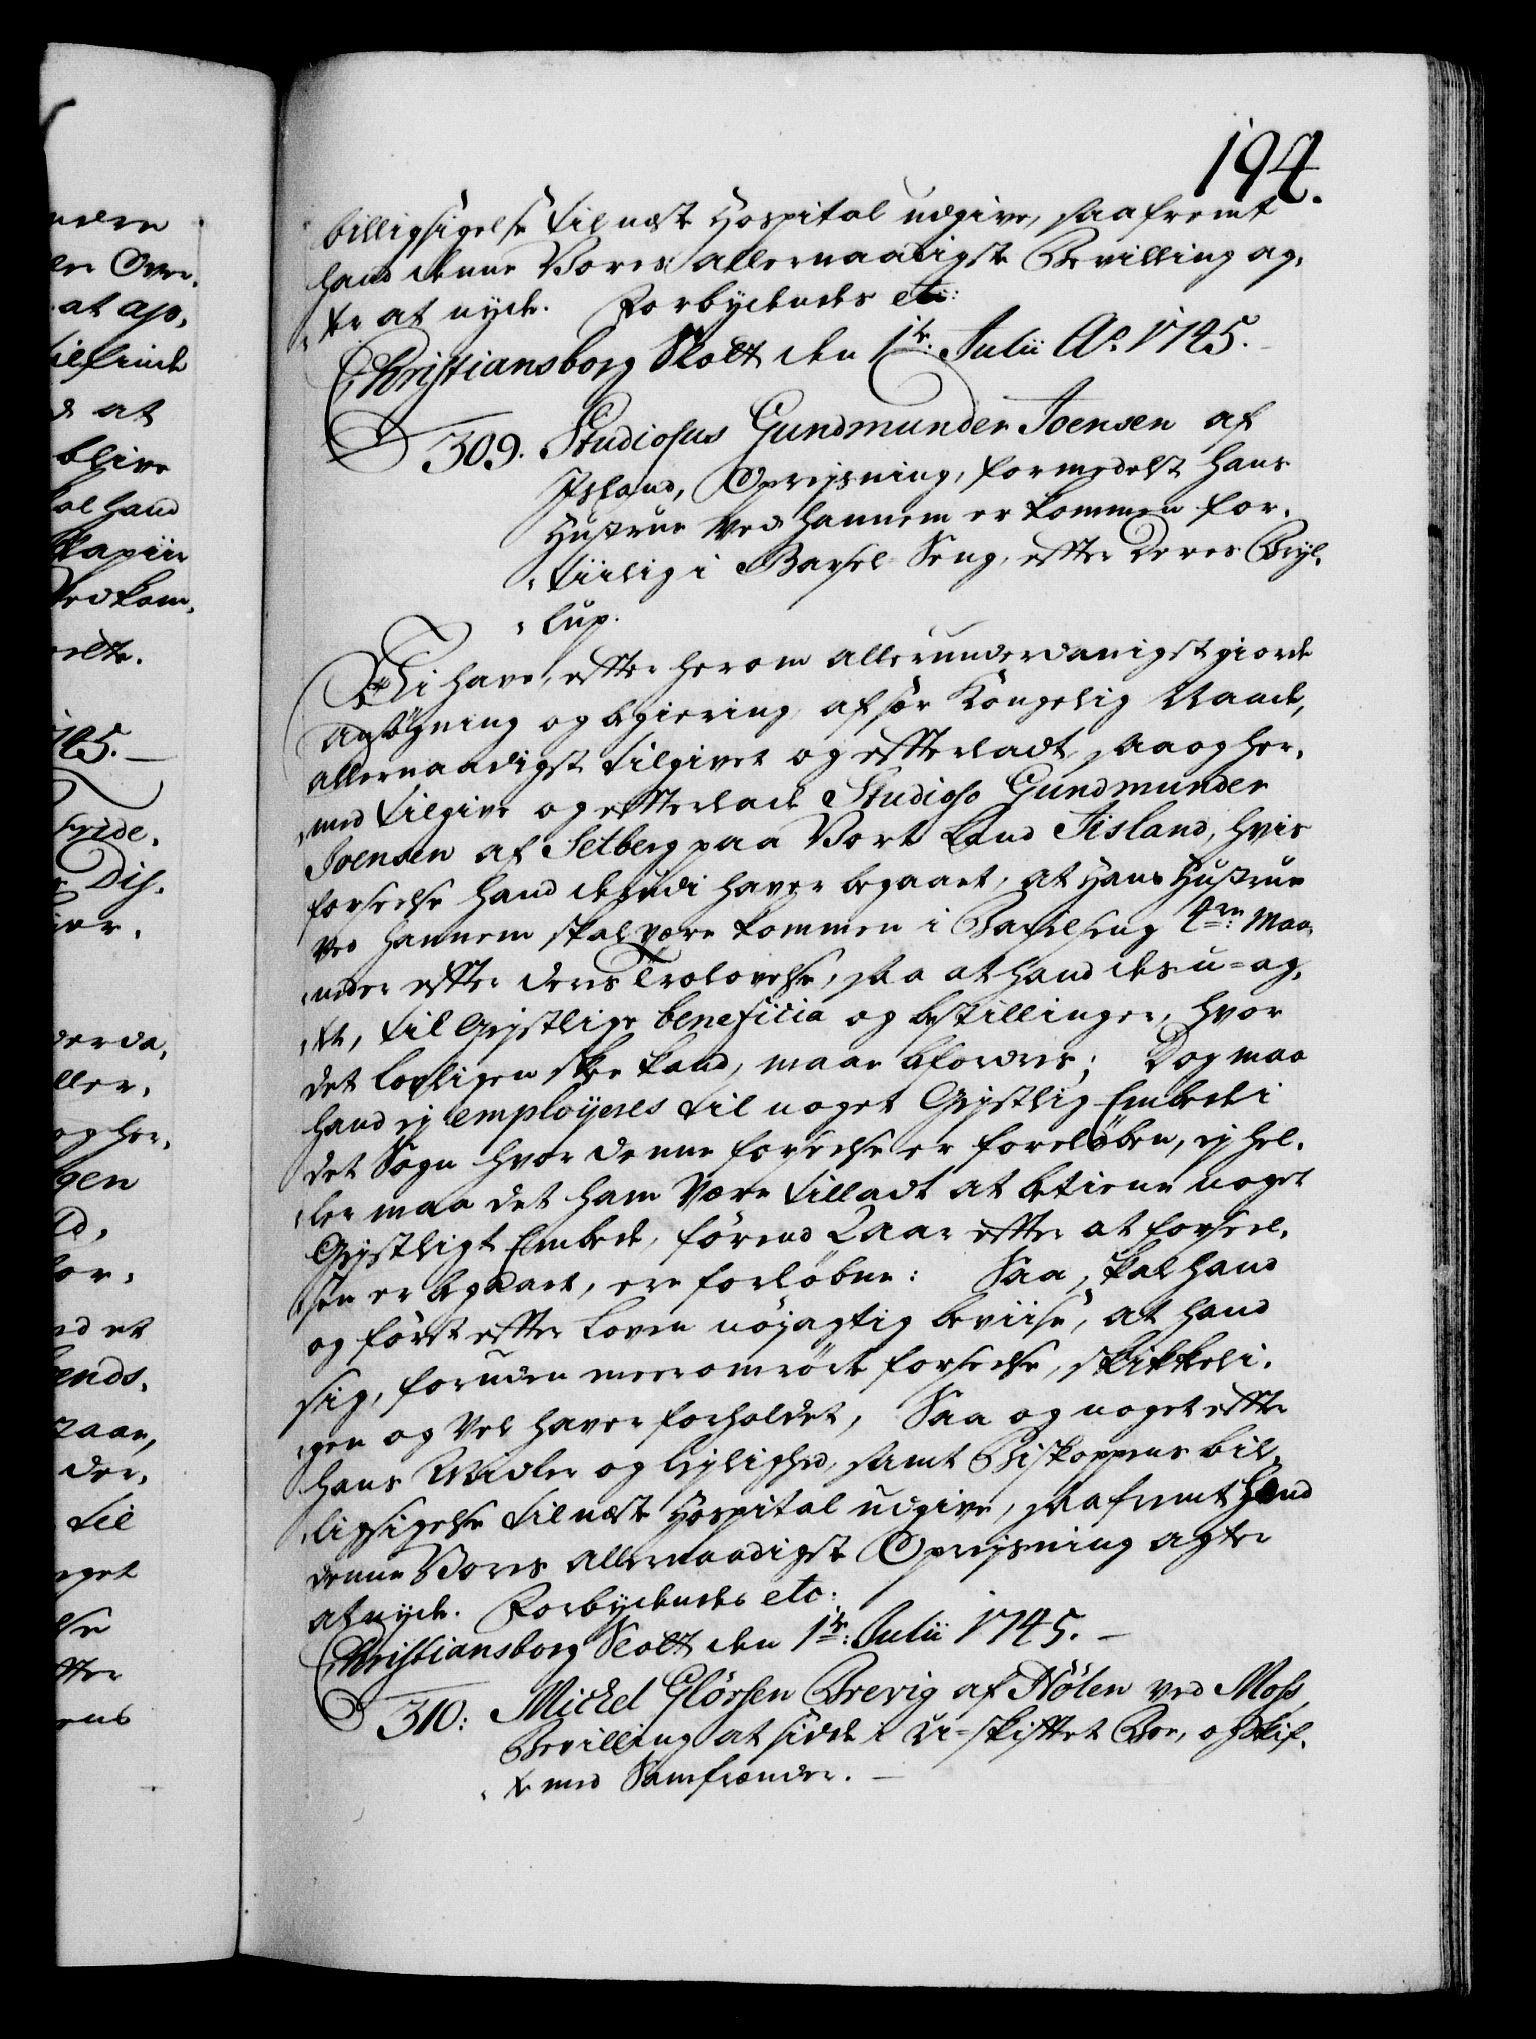 194.
billigsigelse til næste Hospital udgive, saafremt
hand denne Vores allernaadigste Bevilling ag„
„ter at nyde. Forbydendes etc:
Christiansborg Slott den 1te Julii Ao 1745.
309. Studiosus Gundmunder Joensen af
Island, Opreysning, formedelst hans
Hustrue ved hannem er kommen for„
„tiilig i Barsel-Seng, efter deres Bryl„
„lup.
Vi have, efter herom allerunderdanigst giorde
Ansøgning og begiering, af sær Kongelig Naade,
allernaadigst tilgivet og efterladt, saa og her„
„med tilgive og efterlade Studioso Gundmunder
Joensen af Setberg paa Vort Land Iisland, hvis
forseelse hand derudi haver begaaet, at hans Hustrue
ved hannem skal være kommen i Barselseng 4re Maa„
„neder efter deres Trolovelse, saa at hand des u-ag„
„tet, til Gejstlige beneficia og bestillinger, hvor
det lovligen skee kand, maae befordres; Dog maa
hand ej employeres til noget Gejstlig Embede i
det Sogn hvor denne forseelse er foreløben, ej hel„
„ler maa det ham være tilladt at betiene noget
Gejstligt Embede, førend 2 aar efter at forseel„
„sen er begaaet, ere forløbne: Saa skal hand
og først efter Loven nøjagtig beviise, at hand
sig, foruden meeromrørte forseelse, skikkeli„
„gen og vel haver forholdet, Saa og noget efter
hans Midler og lejlighed, samt Biskoppens bil„
„ligsigelse til næste Hospital udgive, saafremt hand
denne Vores allernaadigste Opreysning agter
at nyde. Forbydendes etc:
Christiansborg Slott den 1te: Julii 1745.
310: Michel Glørsen Brevig af Hølen ved Moss,
Bevilling at sidde i U-skiftet Boe, og skif„
„te med Samfrænder.